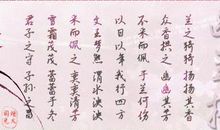 兰之猗猗 扬扬其香
众香拱之 幽幽其芳
不采而佩 于兰何伤
以日以年 我行四方
文王梦熊 渭水泱泱
采而佩之 奕奕清芳
雪霜茂茂 蕾蕾于冬
君子之守 子孙之昌